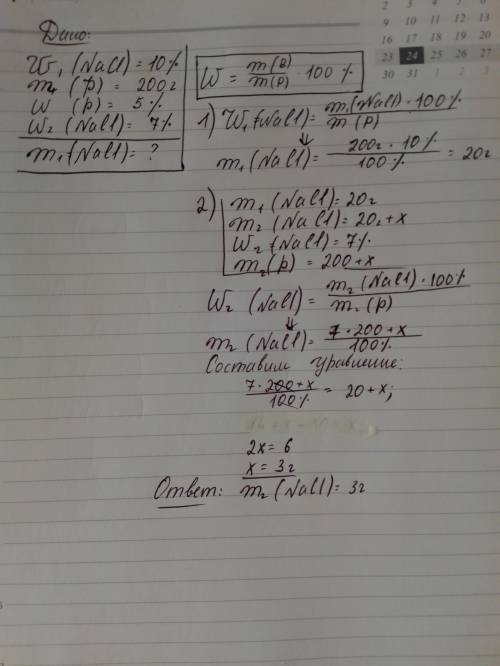 Дано:
W₁ (NaCl) = 10%
m₁ (р) = 200г
W (р) = 5%
W₂ (NaCl) = 7%
m₁ (NaCl) = ?
W = m(В) / m(Р) · 100 %
1) W₁ (NaCl) = m₁(NaCl) · 100% / m (Р)
m₁ (NaCl) = 200г · 10% / 100% = 20г
2) m₁ (NaCl) = 20г
m₂ (NaCl) = 20г + x
W₂ (NaCl) = 7%
m₂ (р) = 200 + x
W₂ (NaCl) = m₂ (NaCl) · 100% / m₂ (р)
m₂ (NaCl) = 7 · 200 + x / 100%
Составим уравнение:
7 · 200 + x / 100% = 20 + x;
2x = 6
x = 3г
Ответ: m₂ (NaCl) = 3г
2 3 4 5 6
9 10 11 12 13
16 17 18 19 20
23 24 25 26 27
30 31 1 2 3